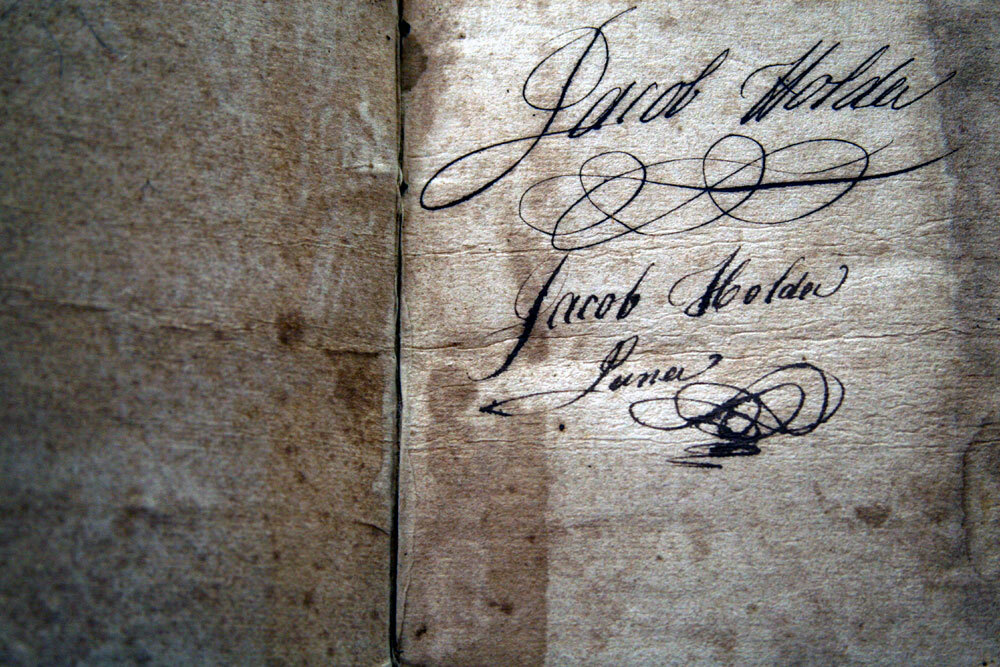 Jacob Holder
Jacob Holder